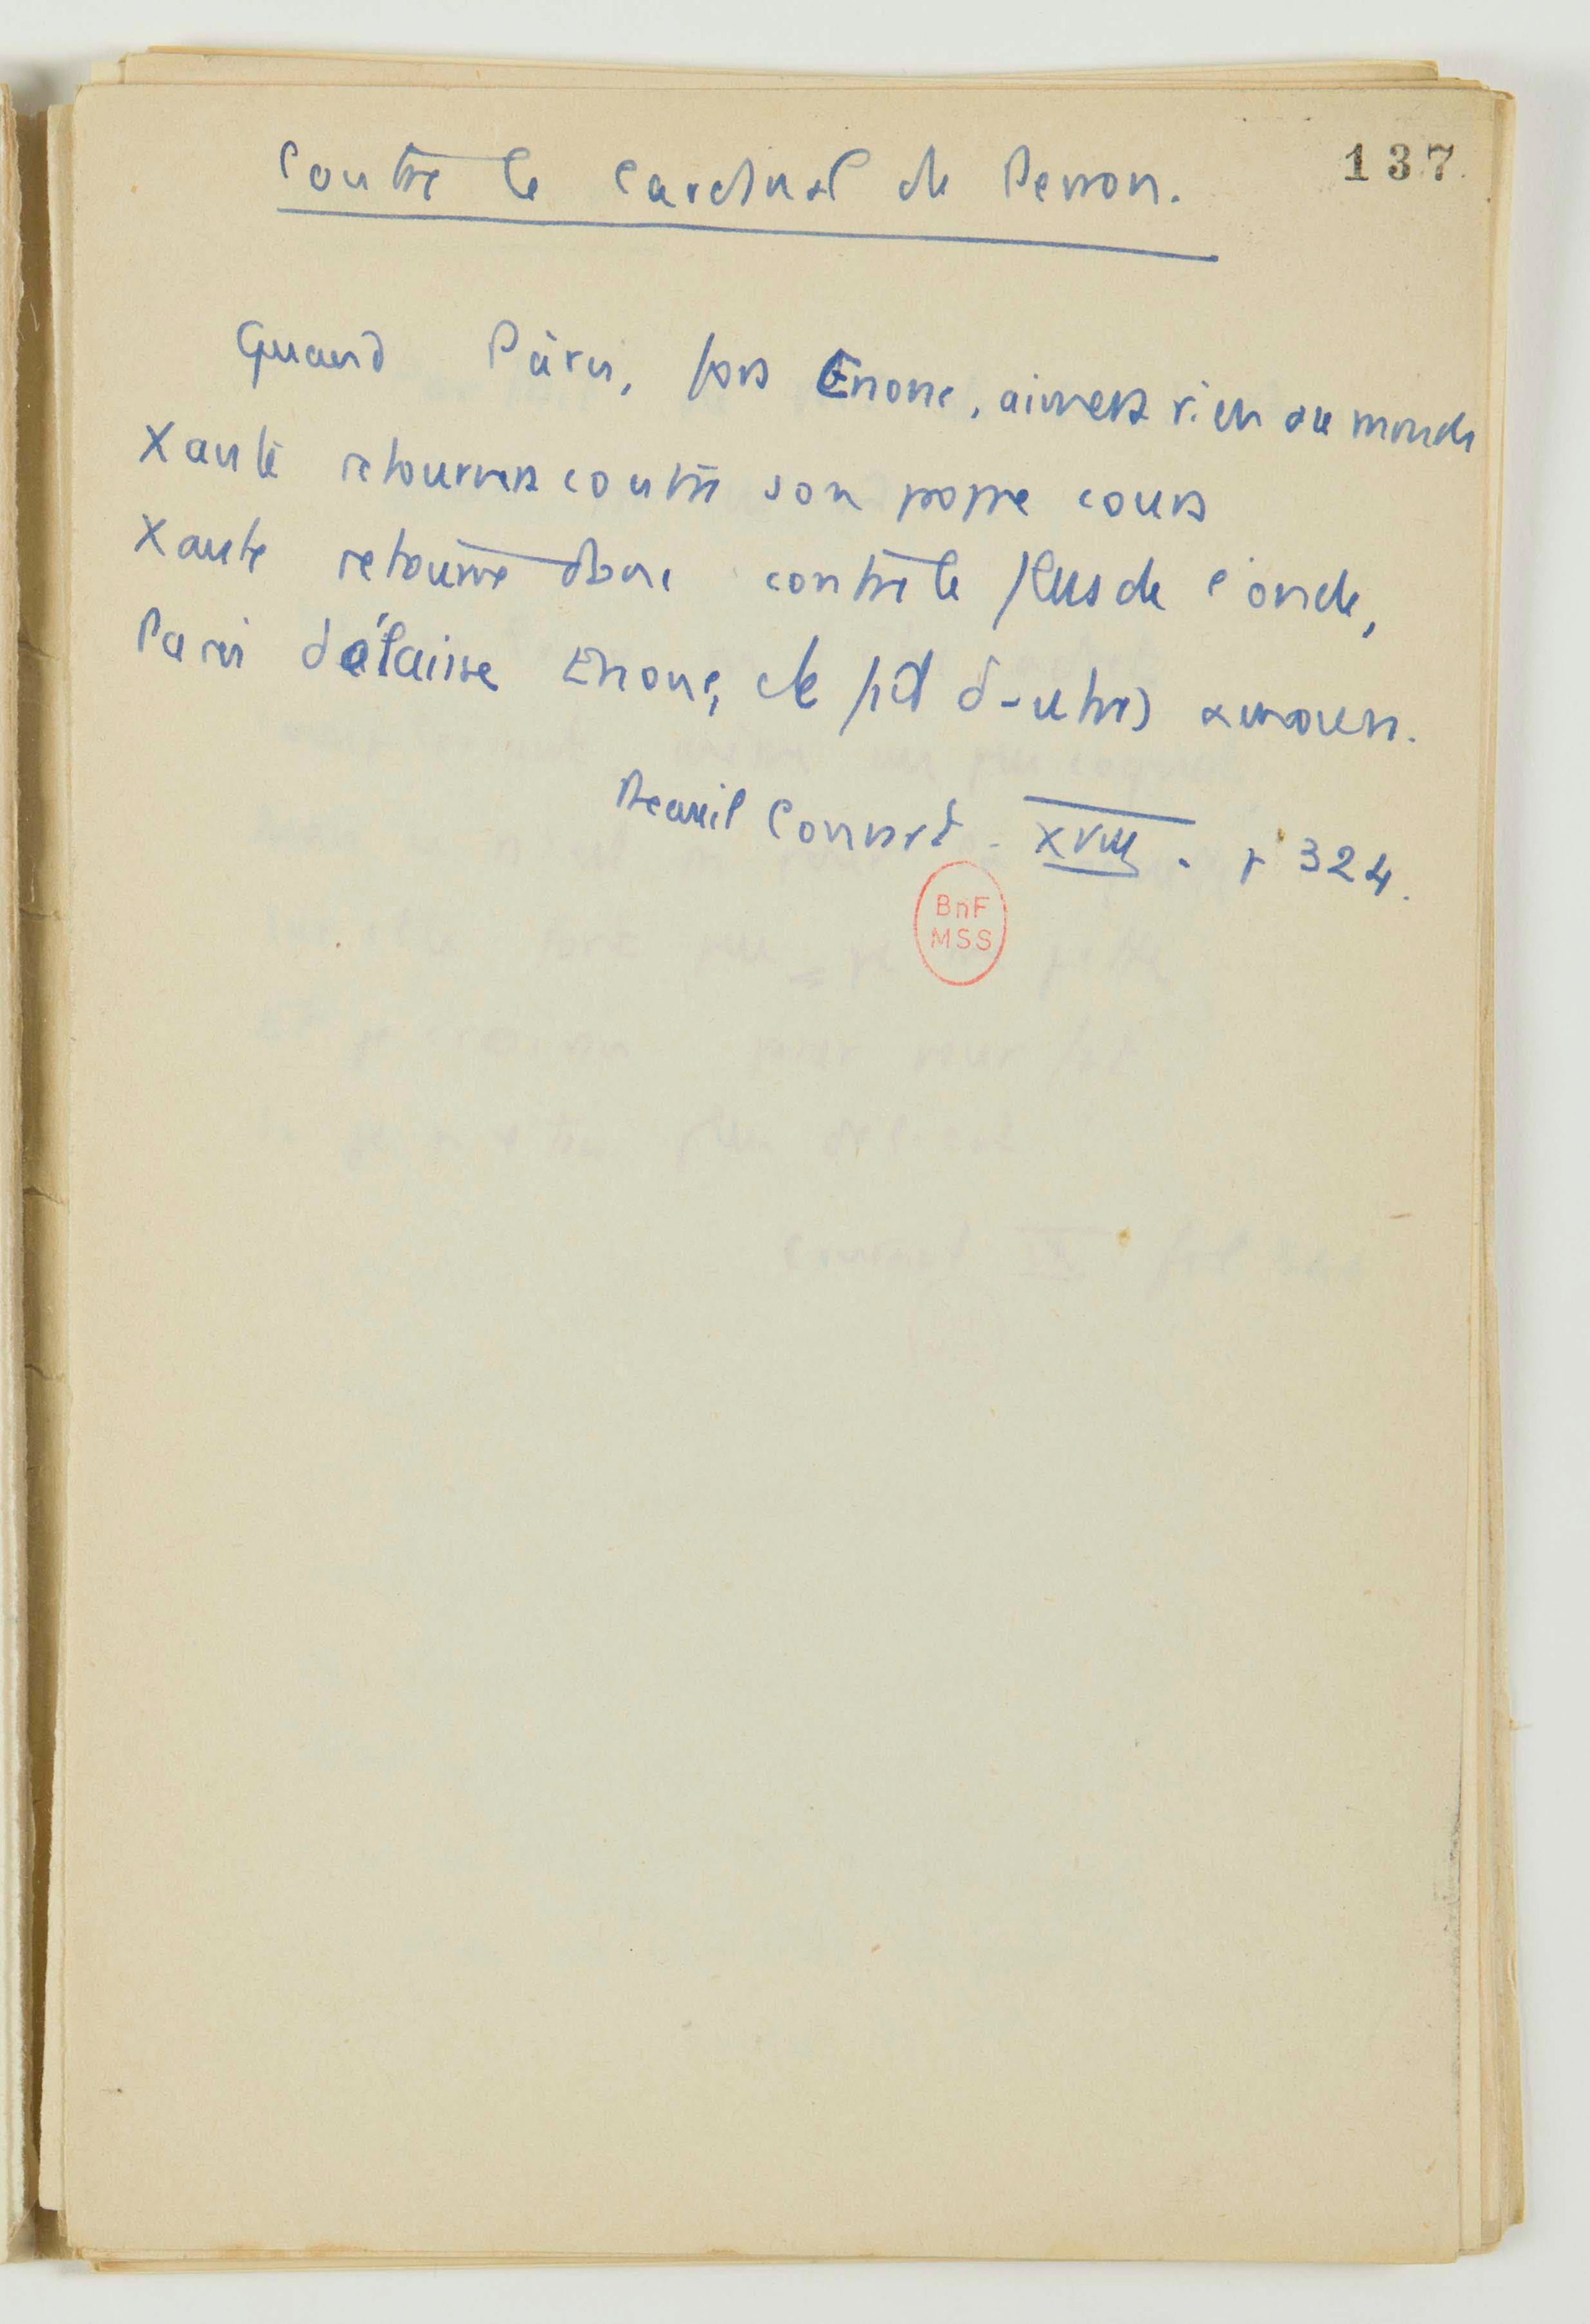 137
Contre le Cardinal de Perron.
Quand Pâris, fors Enone, aimera rien au monde
Xante retournera contre son propre cours
Xante retourne donc contre le flus de l'onde,
Paris délaisse Enone, et fit d'autres amours.
Recueil Conrart. XVIII. p 324.
BnF
MSS